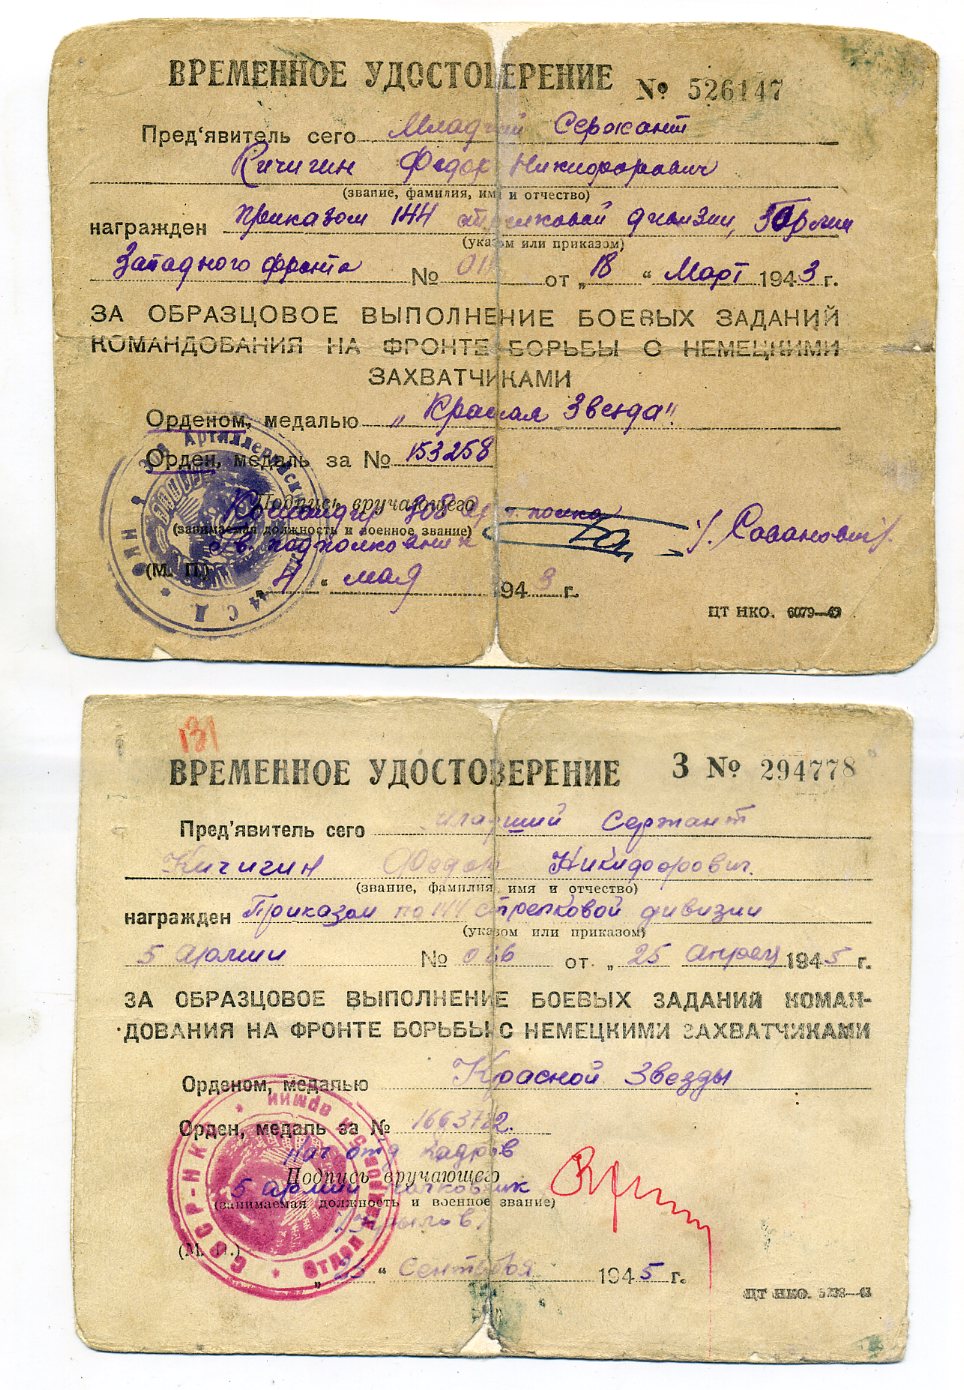 ВРЕМЕННОЕ УДОСТОВЕРЕНИЕ № 526147
Пред'явитель сего Младший Сержант
Кичигин Федор Никифорович
(звание, фамилия, имя и отчество)
награжден приказом 144 стрелковой дивизии,
(указом или приказом)
Западного фронта № от „18“ Март 1943 г.
ЗА ОБРАЗЦОВОЕ ВЫПОЛНЕНИЕ БОЕВЫХ ЗАДАНИЙ
КОМАНДОВАНИЯ НА ФРОНТЕ БОРЬБЫ С НЕМЕЦКИМИ
ЗАХВАТЧИКАМИ
Орденом, медалью „Красная Звезда"
Орден, медаль за № 153258
Подпись вручающего
Командир 308 Арт. полка
(занимаемая должность и военное звание)
гв. подполковник
(М. П.) мая 1943 г.
ЦТ НКО. 6079—43
131
ВРЕМЕННОЕ УДОСТОВЕРЕНИЕ З № 294778
Пред'явитель сего младший Сержант
Кичигин Федор Никифорович.
(звание, фамилия, имя и отчество)
награжден Приказом по 144 стрелковой дивизии
(указом или приказом)
5 армии № от „25 Апреля 1945 г.
ЗА ОБРАЗЦОВОЕ ВЫПОЛНЕНИЕ БОЕВЫХ ЗАДАНИЙ КОМАН-
ДОВАНИЯ НА ФРОНТЕ БОРЬБЫ С НЕМЕЦКИМИ ЗАХВАТЧИКАМИ
Орденом, медалью Красной Звезды
Орден, медаль за № 1663722.
Нач отд кадров
Подпись вручающего
5 армии полковник
(занимаемая должность и военное звание)
(М. П.)
„ “ Сентября 1945 г.
ЦТ НКО.